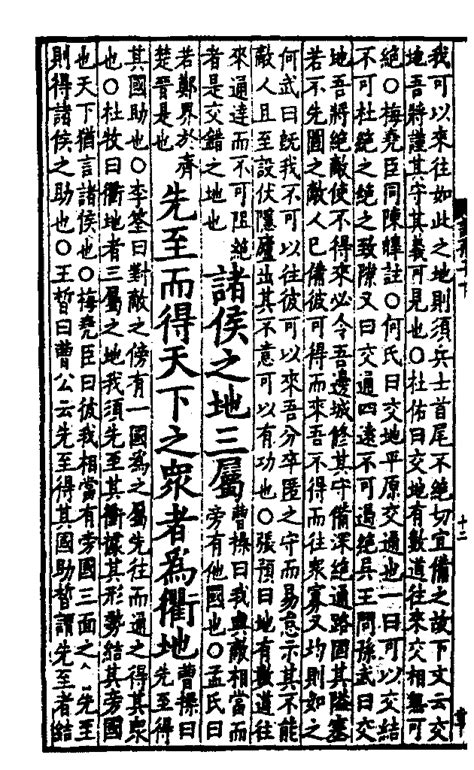 我可以來往如此之地則須兵士首尾不絕切宜備之故下文云交
地吾將謹其守其義可見也○杜佑曰交地有數道往來交相無可
絕○梅堯臣同陳皡註○何氏曰交地平原交通也一曰可以交結
不可杜絕之絕之致隙又曰交通四遠不可遏絕吳王問孫武曰交
地吾將絕敵使不得來必令吾邊城修其守備深絕通路固其隘塞
若不先圖之敵人已備彼可得而來吾不得而往衆寡又均則如之
何武曰旣我不可以往彼可以來吾分卒匿之守而易怠示其不能
敵人且至設伏隱廬出其不意可以有功也○張預曰地有數道往
來通達而不可阻絕
者是交錯之地也
諸侯之地三屬
曹操曰我與敵相當而
旁有他國也○孟氏曰
若鄭界於齊
楚晉是也
先至而得天下之衆者爲衢地
曹操曰
先至得
其國助也○李筌曰對敵之傍有一國爲之屬先往而通之得其衆
也○杜牧曰衢地者三屬之地我須先至其衝據其形勢結其旁國
也天下猶言諸侯也○梅堯臣曰彼我相當有旁國三面之 先至
則得諸侯之助也○王晳曰曹公云先至得其國助晳謂先至者結
十二